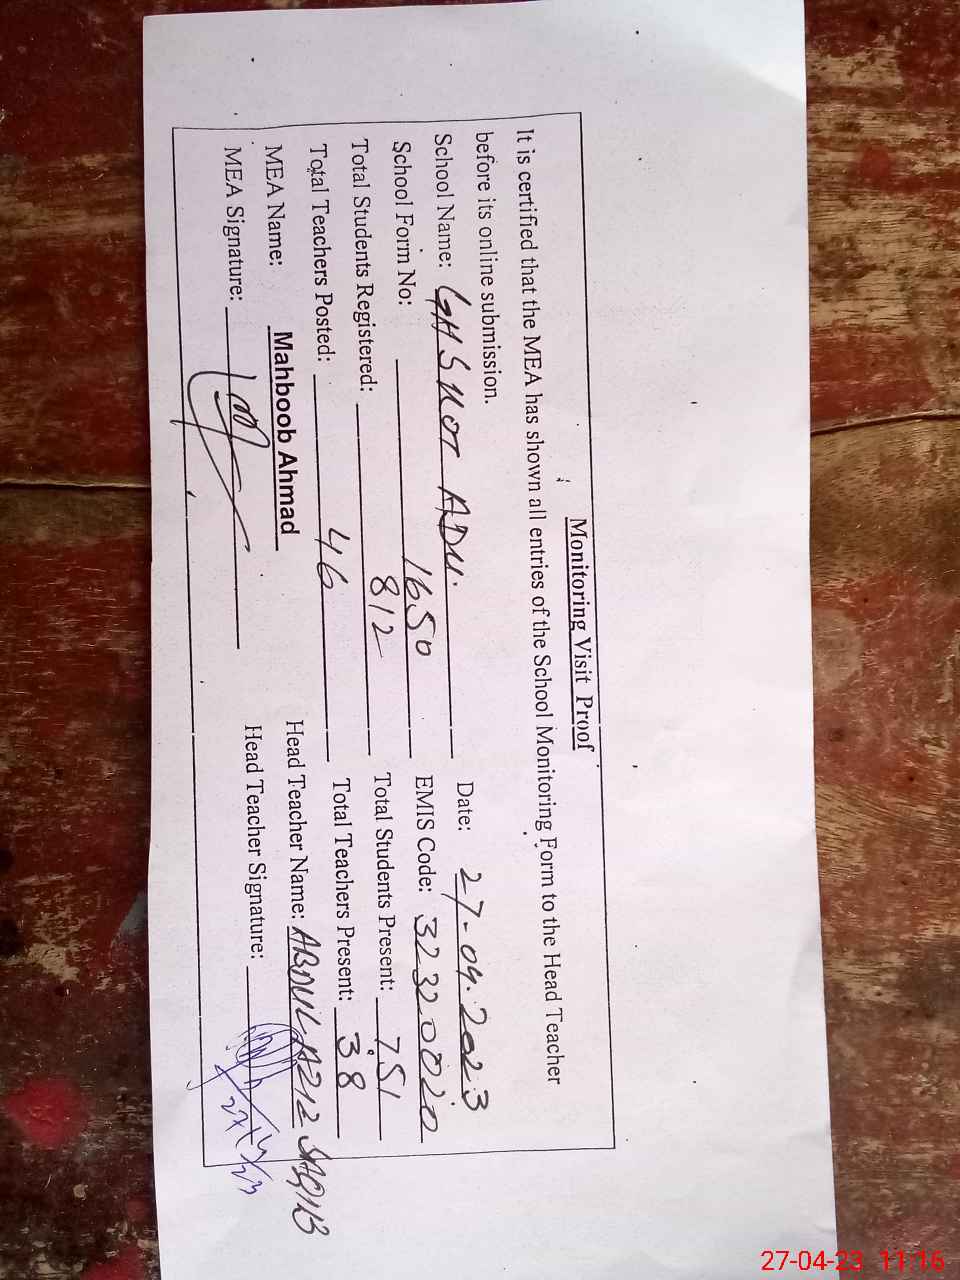 Monitoring Visit Proof
It is certified that the MEA has shown all entries of the School Monitoring Form to the Head Teacher
before its online submission.
School Name: GHS NOT ADU. Date: 27-04-2023
School Form No: 1650 EMIS Code: 32320020
Total Students Registered: 812 Total Students Present: 751
Total Teachers Posted: 46 Total Teachers Present: 38
MEA Name: Mahboob Ahmad Head Teacher Name: ABDUL AZIZ SAQIB
MEA Signature: Head Teacher Signature:
27/4/23
27-04-23 11:16